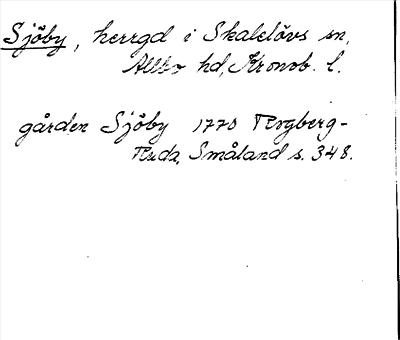 Sjöby, herrgd i Skatelövs sn,
Allbo hd, Kronob. l.
gården Sjöby 1770 Rogberg-
Ruda, Småland s. 348.